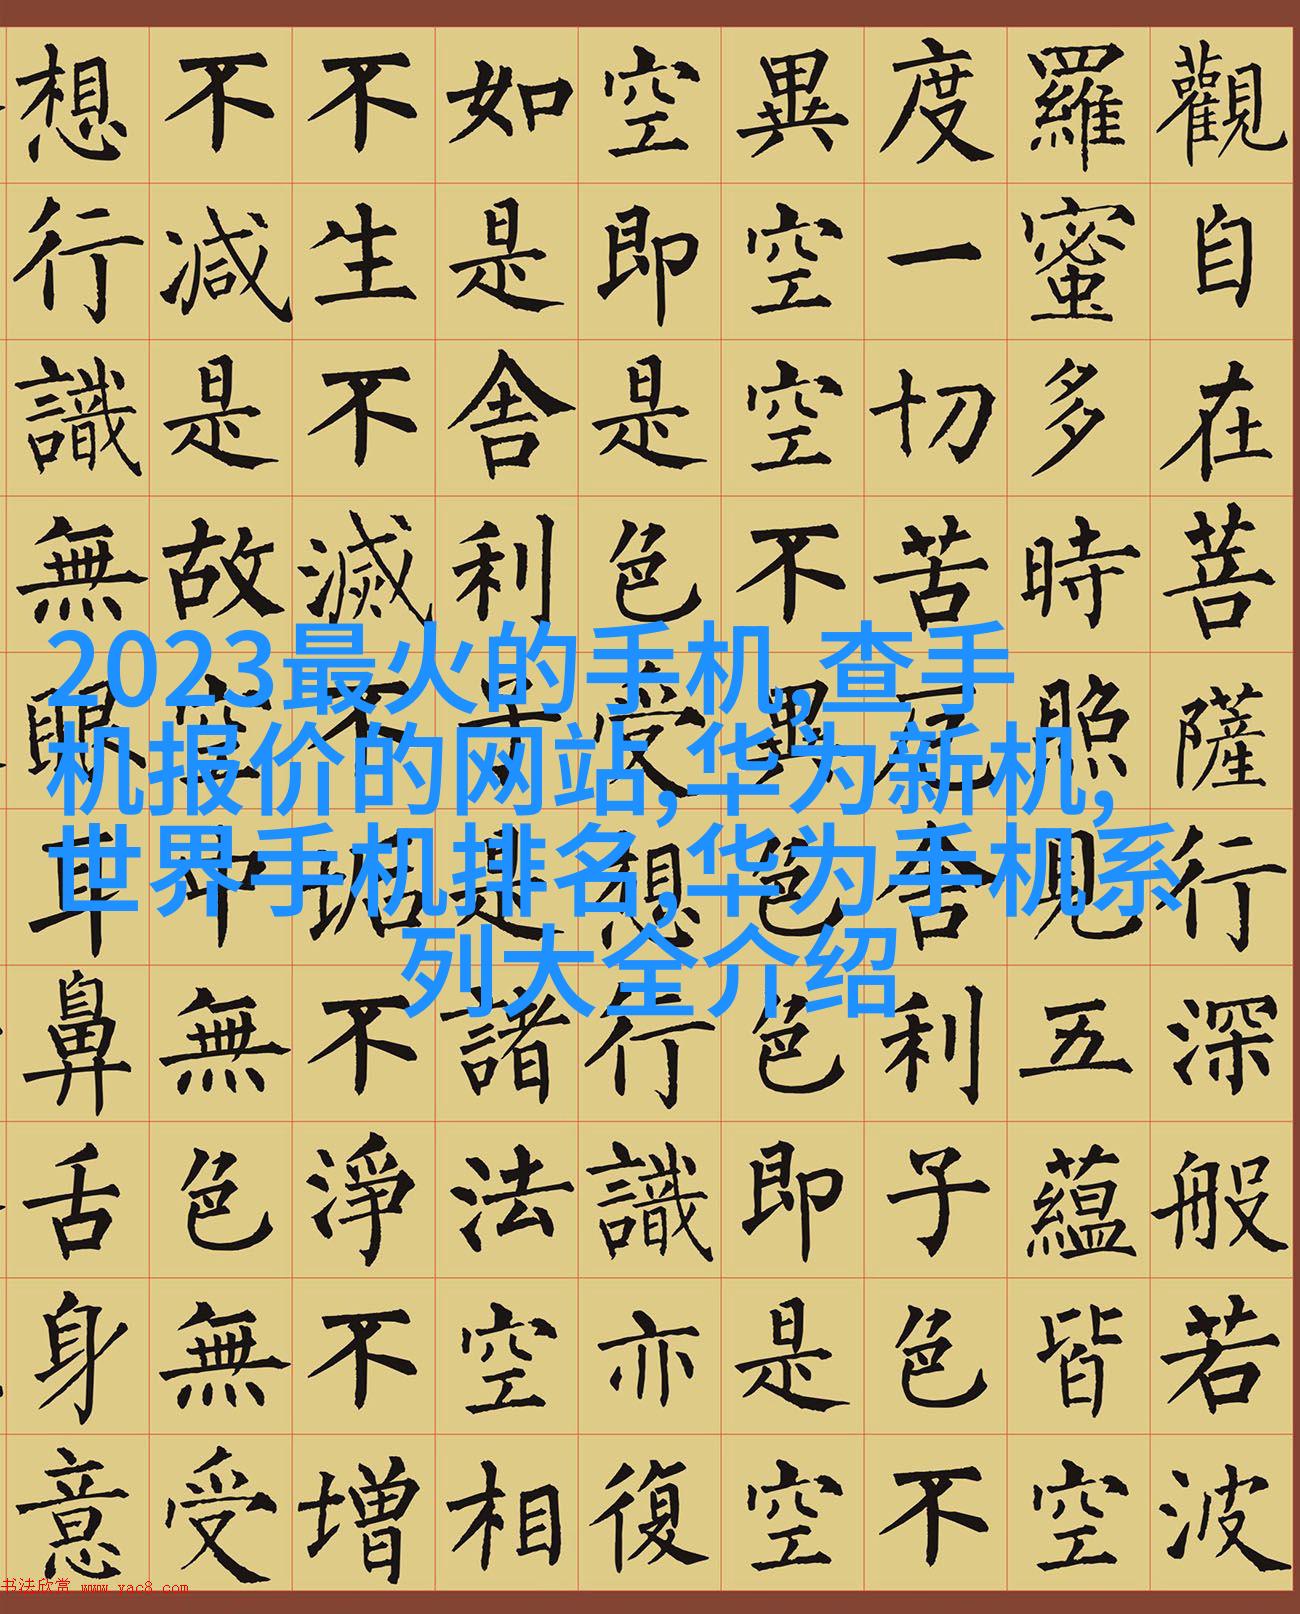 觀自在菩薩行深般若波
羅蜜多時照見五蘊皆空
度一切苦厄舍利子色不
異空空不異色色即是空
空即是色受想行識亦復
如是舍利子是諸法空相
不生不滅不垢不淨不增
不減是故空中無色無受
想行識無眼耳鼻舌身意
2023最火的手机,查手
机报价的网站,华为新机,
世界手机排名,华为手机系
列大全介绍
书法欣赏 www.yac8.com